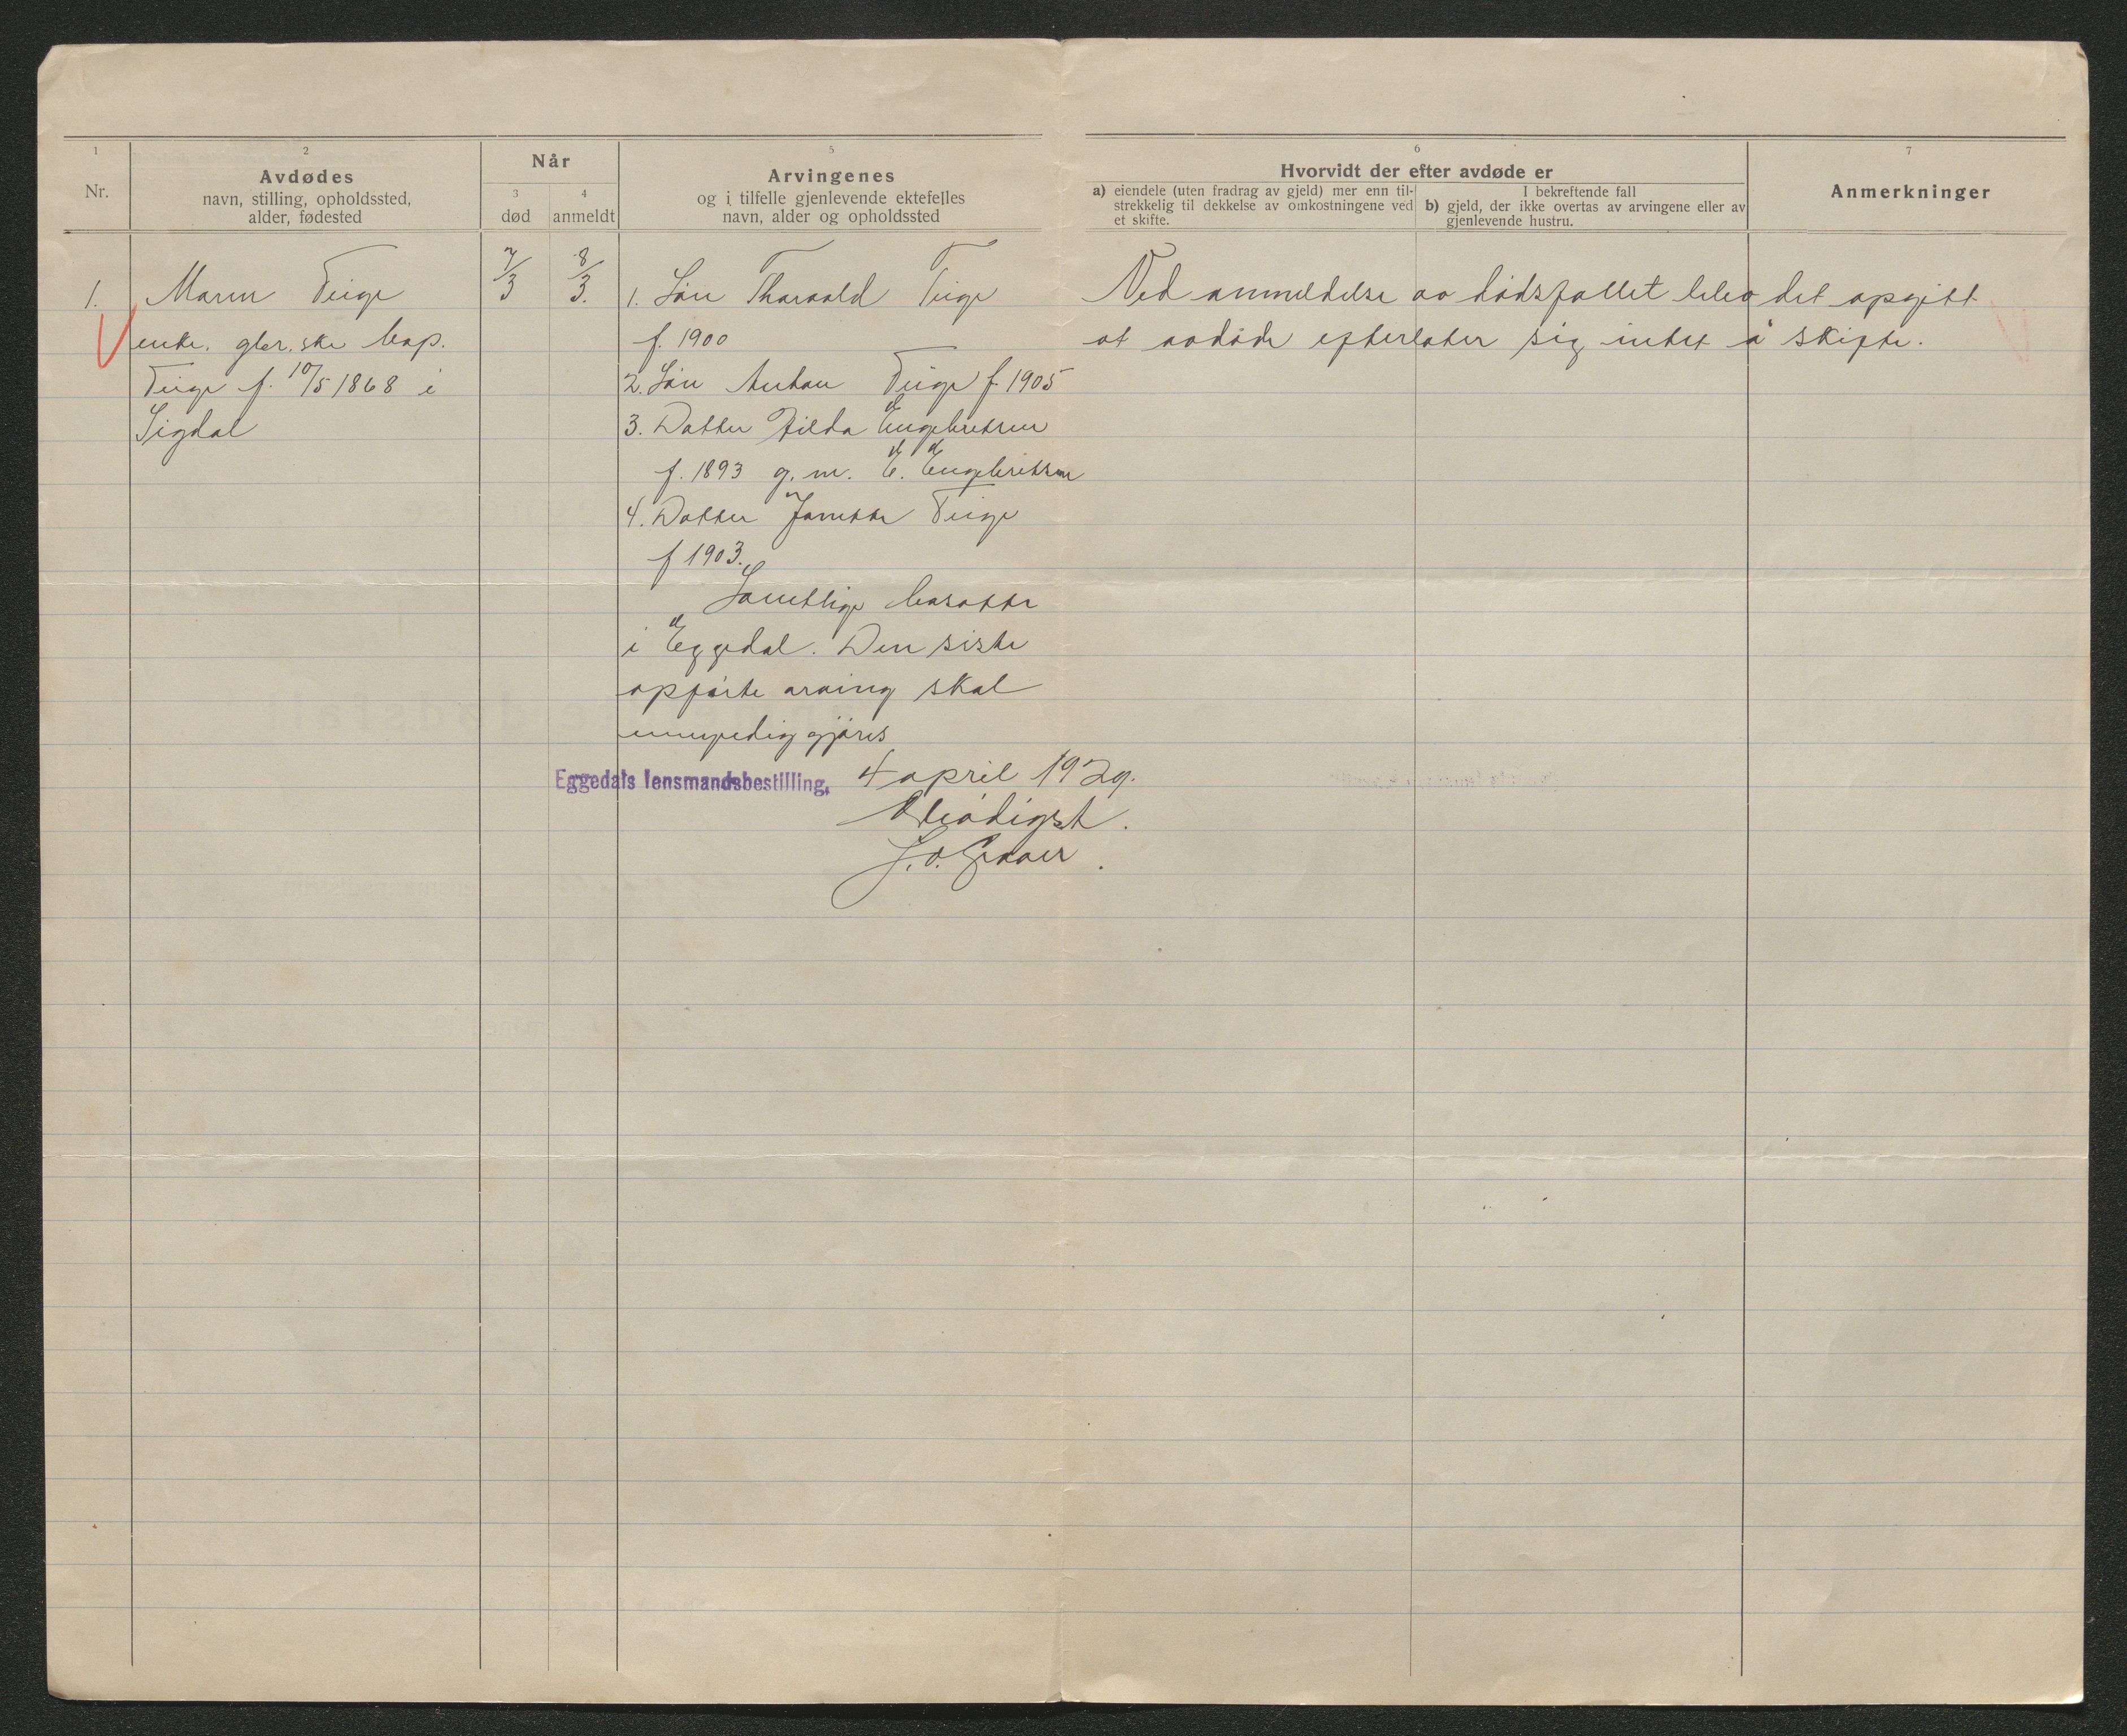 1
Nr.
2
Avdødes
navn, stilling, opholdssted,
alder, fødested
Når
3
død
4
anmeldt
5
Arvingenes
og i tilfelle gjenlevende ektefelles
navn, alder og opholdssted
6
Hvorvidt der efter avdøde er
a) eiendele (uten fradrag av gjeld) mer enn til-
strekkelig til dekkelse av omkostningene ved
et skifte.
I bekreftende fall
b) gjeld, der ikke overtas av arvingene eller av
gjenlevende hustru.
7
Anmerkninger
1.
Maren Teige
enke.
Teige f. 10/5 1868 i
Sigdal
7/3
8/3.
1. Søn Tharvald Teige
f. 1900
2. Søn Anton Teige f. 1905
3. Datter Hilda Engebretsen
f. 1893 g. m. E. Engebretsen
4. Datter Janette Teige
f 1903.
Samtlige bosatte
i Eggedal. Den siste
opførte arving skal
umyndiggjøres
Ved anmeldelse av dødsfallet blev det opgitt
at avdøde efterlater sig intet å skifte.
Eggedals lensmandsbestilling, 4 april 1929.
Ærbødigst.